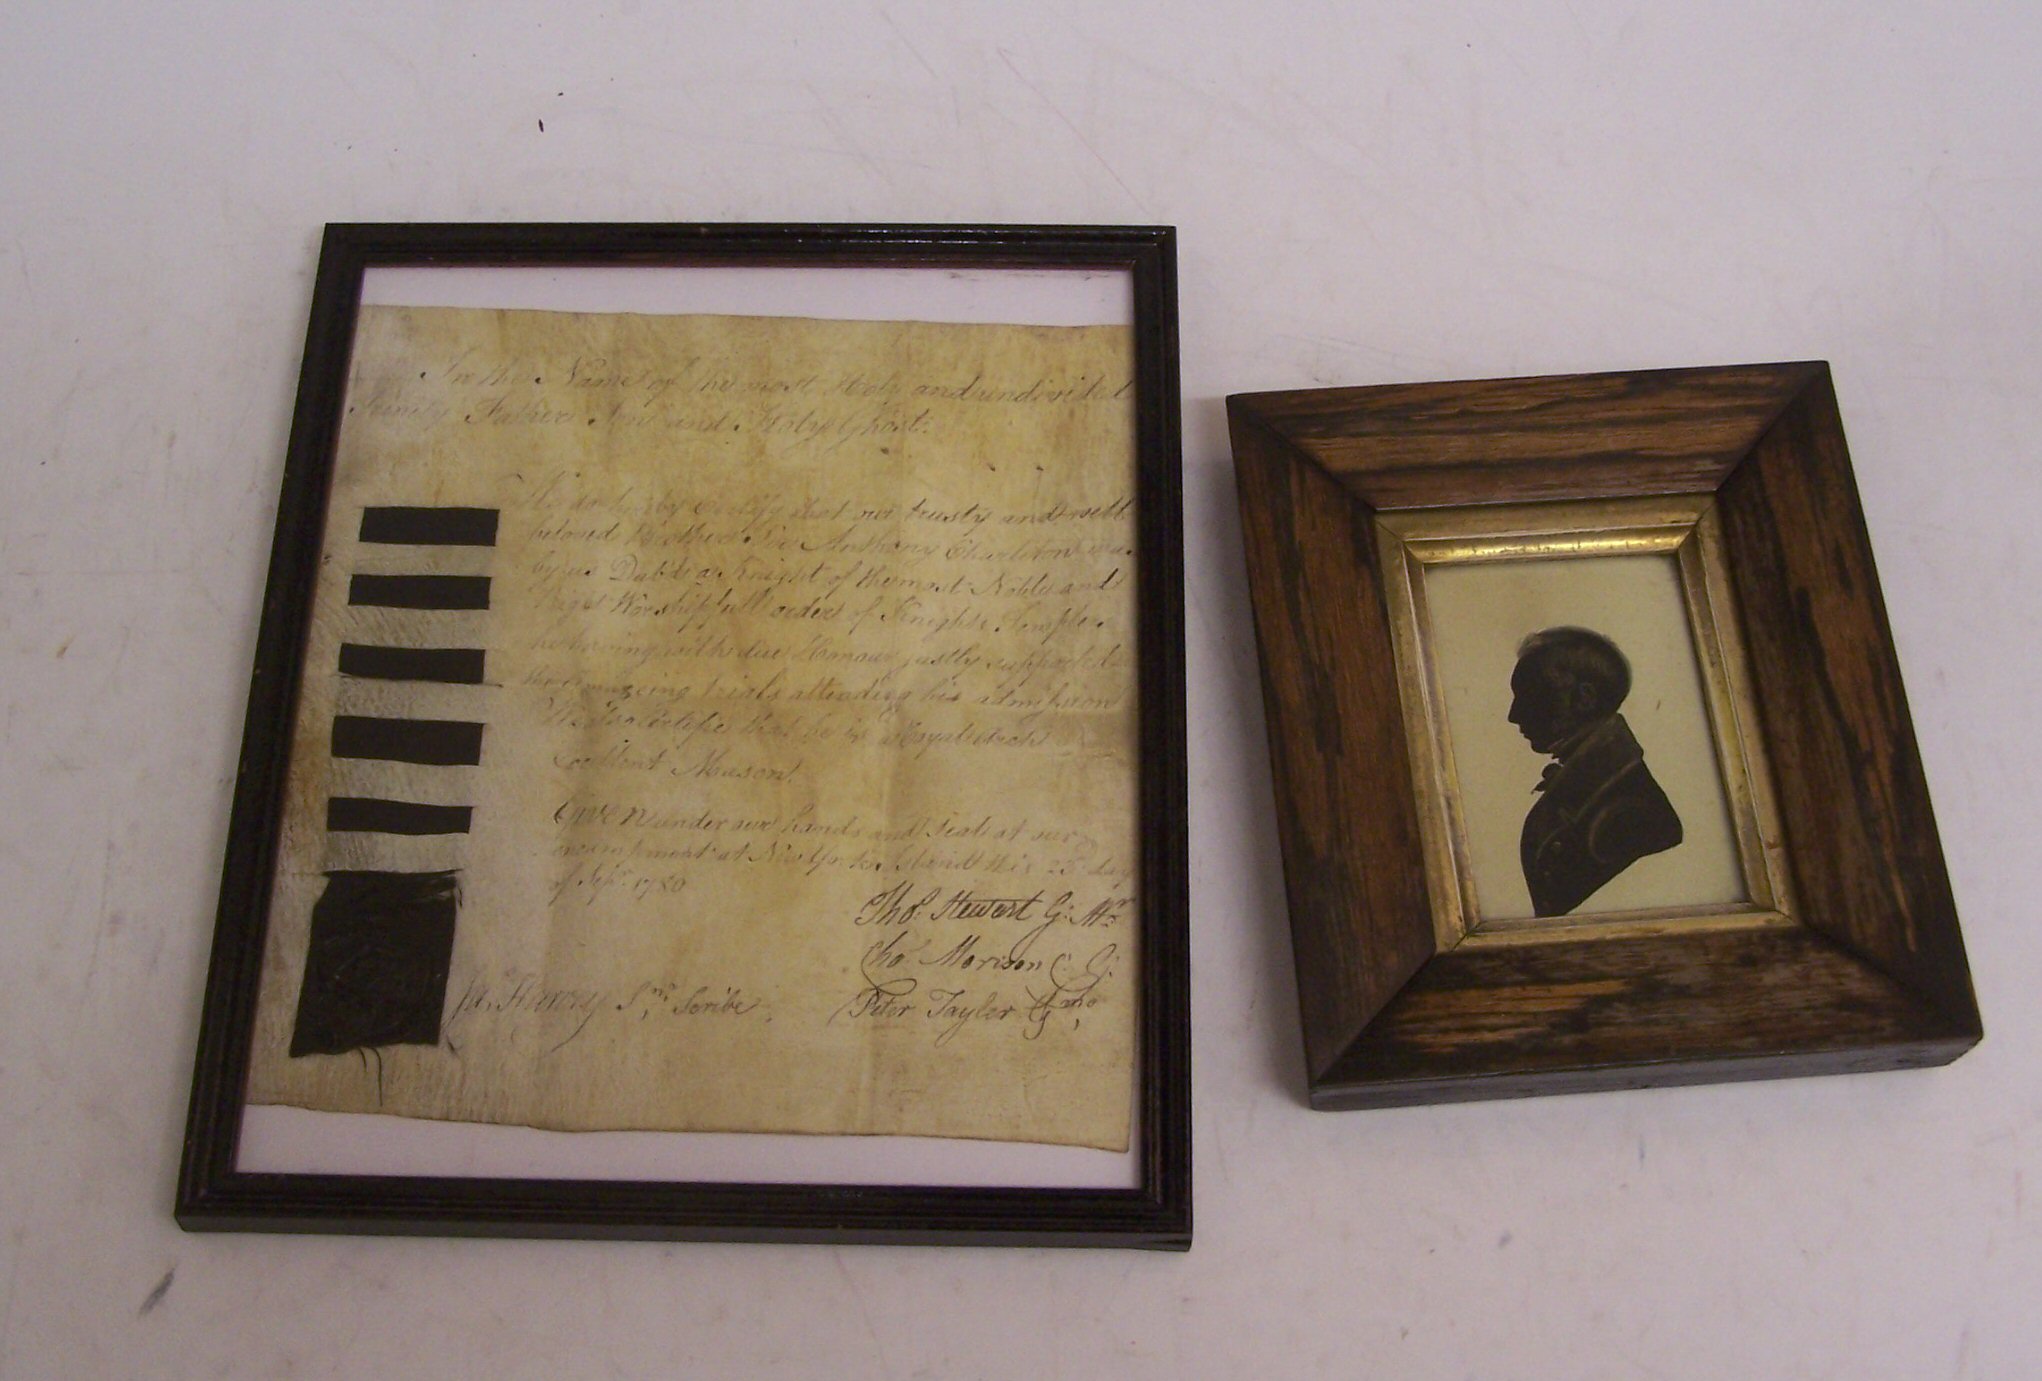 In the Name of the most Holy and undivided
Trinity Father Son and Holy Ghost.
We do hereby Certify that our trusty and well
beloved Brother Sir Anthony Charleton was
by us Dub'd a Knight of the most Noble and
Right Worshipfull order of Knights Templer
he having with due Honour justly supported
the amazeing trials attending his admission
We also Certifie that he is a Royal Arch
Excellent Mason.
Given under our hands and Seal at our
encampment at New York Island this 25 day
of Sepr. 1780
Tho: Stewart G: Mr
Tho: Morison C: G:
Ja. Harvey Scribe
Peter Tayler